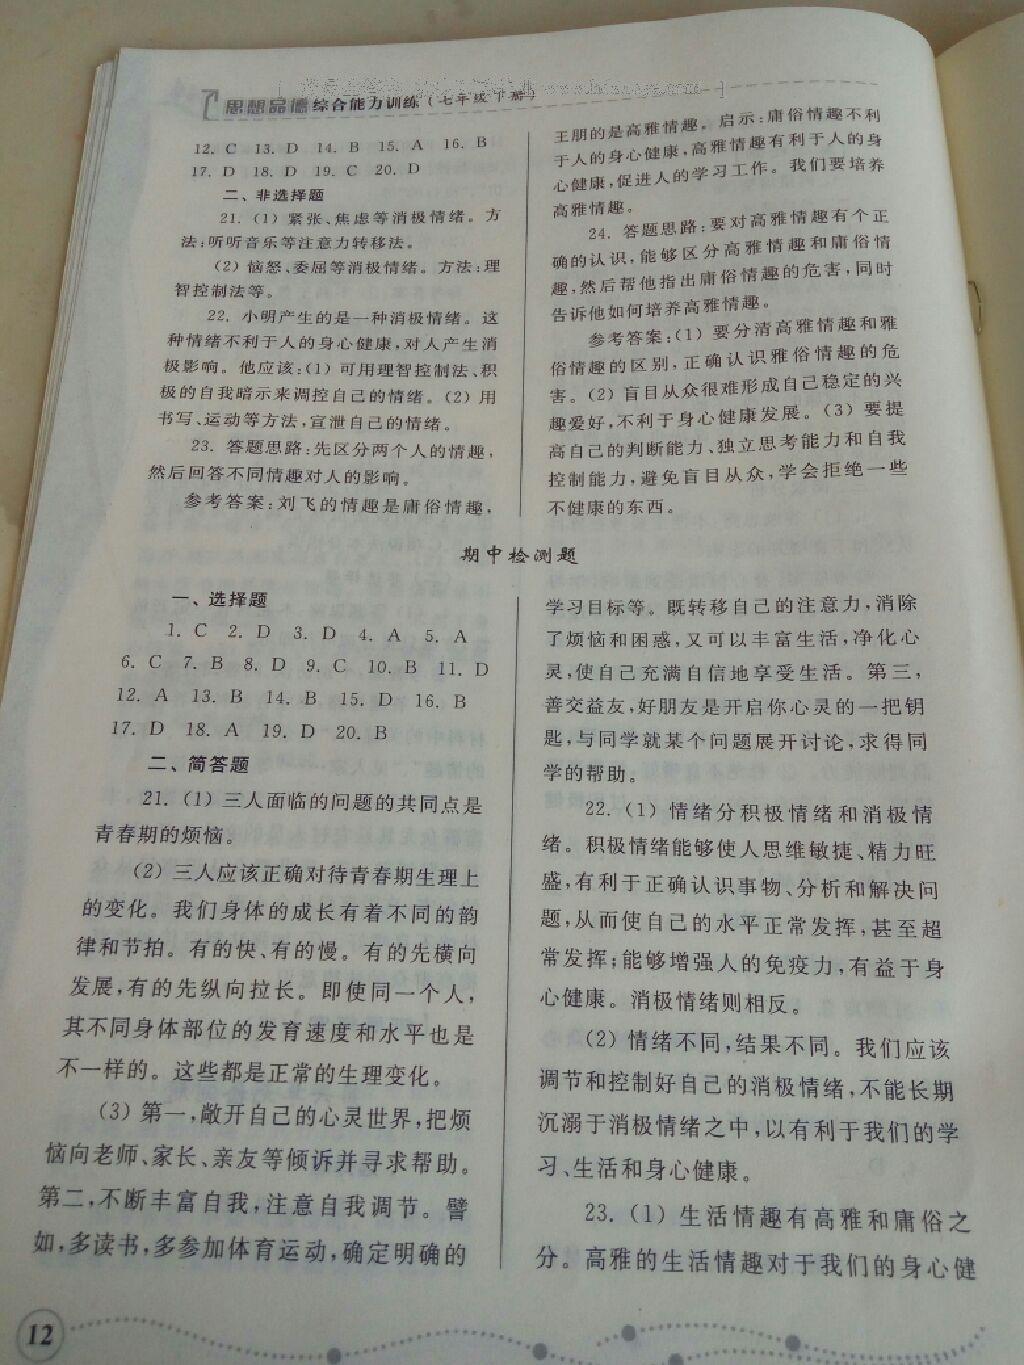 思想品德综合能力训练(七年级下册)
12. C 13. D 14. B 15. A 16. B
17. D 18. D 19. C 20. D
二、非选择题
21. (1) 紧张、焦虑等消极情绪。方
法:听听音乐等注意力转移法。
(2) 恼怒、委屈等消极情绪。方法:理
智控制法等。
22. 小明产生的是一种消极情绪。这
种情绪不利于人的身心健康,对人产生消
极影响。他应该:(1) 可用理智控制法、积
极的自我暗示来调控自己的情绪。(2) 用
书写、运动等方法,宣泄自己的情绪。
23. 答题思路:先区分两个人的情趣,
然后回答不同情趣对人的影响。
参考答案:刘飞的情趣是庸俗情趣,
王朋的是高雅情趣。启示:庸俗情趣不利
于人的身心健康,高雅情趣有利于人的身
心健康,促进人的学习工作。我们要培养
高雅情趣。
24. 答题思路:要对高雅情趣有个正
确的认识,能够区分高雅情趣和庸俗情
趣,然后帮他指出庸俗情趣的危害,同时
告诉他如何培养高雅情趣。
参考答案:(1) 要分清高雅情趣和雅
俗情趣的区别,正确认识雅俗情趣的危
害。(2) 盲目从众很难形成自己稳定的兴
趣爱好,不利于身心健康发展。(3) 要提
高自己的判断能力、独立思考能力和自我
控制能力,避免盲目从众,学会拒绝一些
不健康的东西。
期中检测题
一、选择题
1. C 2. D 3. D 4. A 5. A
6. C 7. B 8. D 9. C 10. B 11. D
12. A 13. B 14. B 15. D 16. B
17. D 18. A 19. D 20. B
二、简答题
21. (1) 三人面临的问题的共同点是
青春期的烦恼。
(2) 三人应该正确对待青春期生理上
的变化。我们身体的成长有着不同的韵
律和节拍。有的快、有的慢。有的先横向
发展,有的先纵向拉长。即使同一个人,
其不同身体部位的发育速度和水平也是
不一样的。这些都是正常的生理变化。
(3) 第一,敞开自己的心灵世界,把烦
恼向老师、家长、亲友等倾诉并寻求帮助。
第二,不断丰富自我,注意自我调节。譬
如,多读书,多参加体育运动,确定明确的
学习目标等。既转移自己的注意力,消除
了烦恼和困惑,又可以丰富生活,净化心
灵,使自己充满自信地享受生活。第三,
善交益友,好朋友是开启你心灵的一把钥
匙,与同学就某个问题展开讨论,求得同
学的帮助。
22. (1) 情绪分积极情绪和消极情
绪。积极情绪能够使人思维敏捷、精力旺
盛,有利于正确认识事物、分析和解决问
题,从而使自己的水平正常发挥,甚至超
常发挥;能够增强人的免疫力,有益于身
心健康。消极情绪则相反。
(2) 情绪不同,结果不同。我们应该
调节和控制好自己的消极情绪,不能长期
沉溺于消极情绪之中,以有利于我们的学
习、生活和身心健康。
23. (1) 生活情趣有高雅和庸俗之
分。高雅的生活情趣对于我们的身心健
12